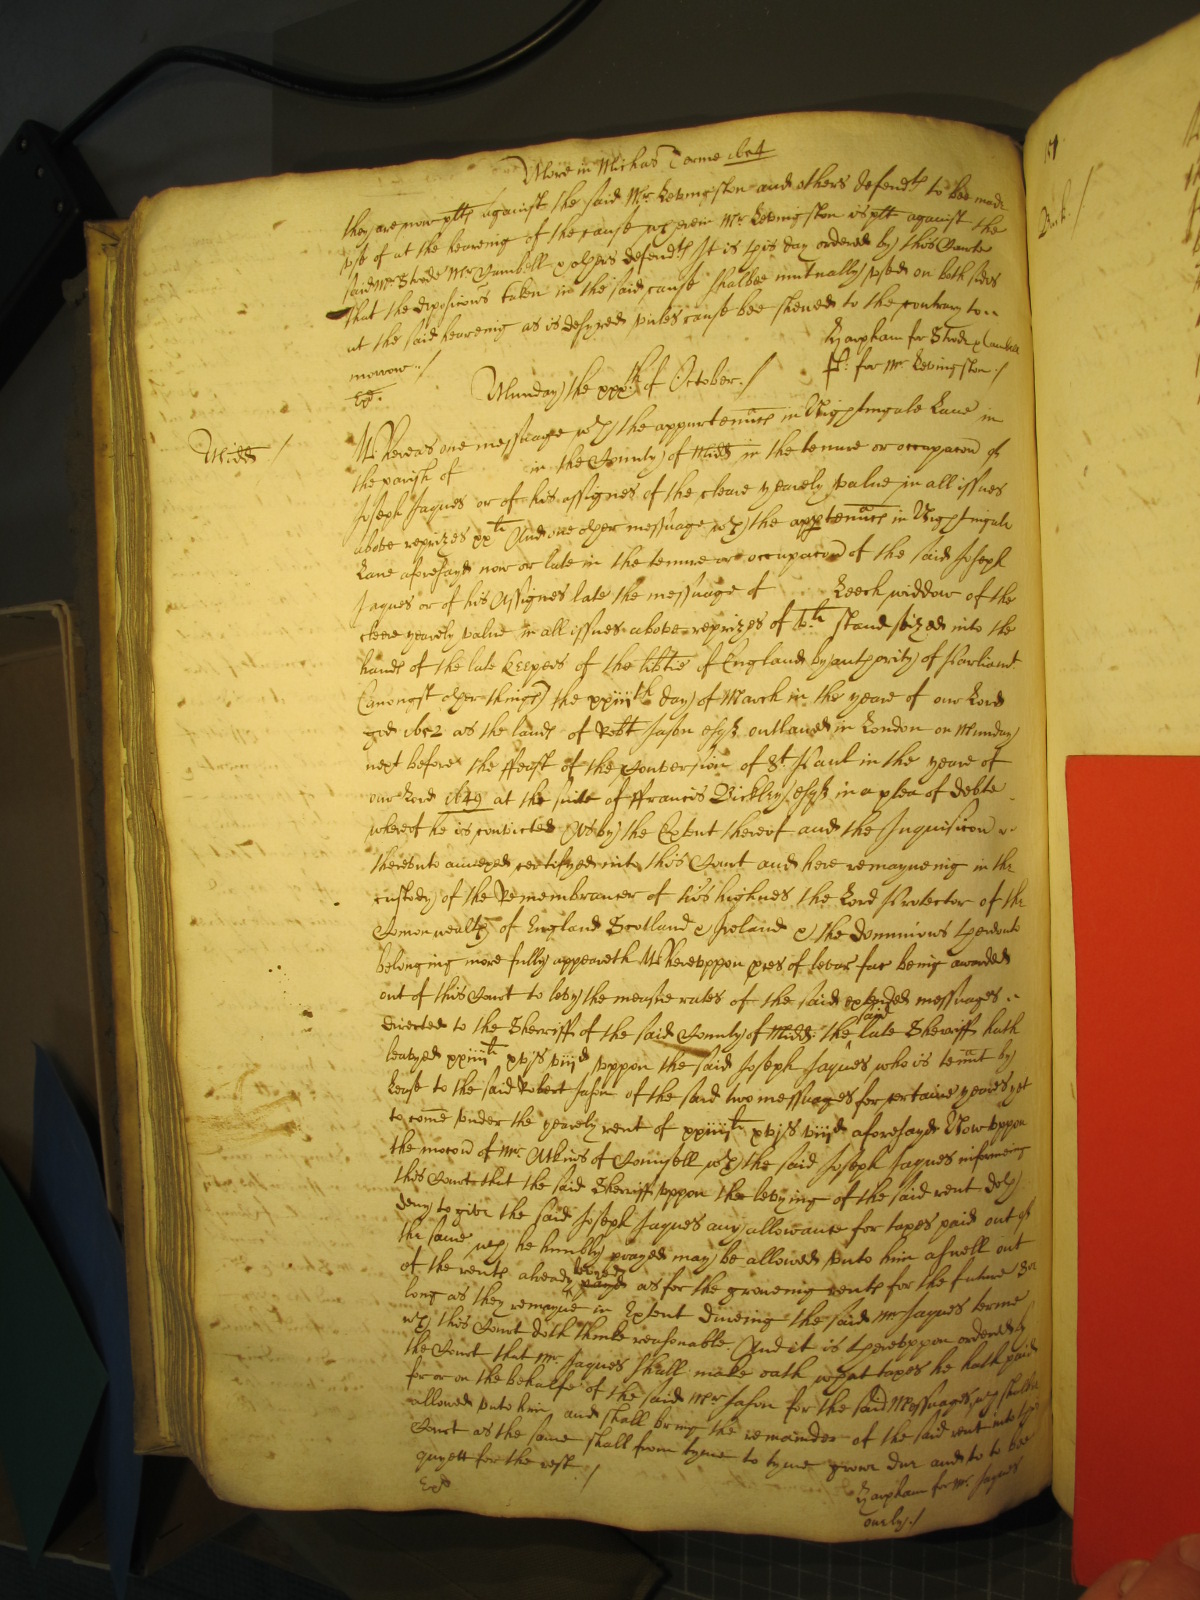 More in Michas Terme 1654
they are now plts against the said Mr Levingston and others defendts to bee made
use of at the heareing of the cause wherein Mr Levingston is plt against the
said Mr Strode Mr Cambell & others defendts It is this day ordered by this Courte
that the deposicons taken in the said cause shalbee mutually used on both sides
at the said heareing as is desyred unles cause bee shewed to the contrary to
morrow ./
Harpham for Strode & Cambell
for Mr Levingston ./
Ex.
Munday the xxxth of October ./
Midds /
Whereas one messuage wth the appurtennces in Nightingale Lane in
the parish of in the County of Midds in the tenure or occupacon of
Joseph Jaques or of his assignes of the cleare yearely value in all issues
above reprizes xxli And one other messuage wth the appurtennces in Nightingale
Lane aforesayd now or late in the tenure or occupacon of the said Joseph
Jaques or of his Assignes late the messuage of Leech widdow of the
cleere yearely value in all issues above reprizes of li stand seized into the
hands of the late Keepers of the libtie of England by authority of Parliamt
(amongst other things) the xxiiiith day of March in the yeare of our Lord
god 1652 as the lands of Robt Jason esqr outlawed in London on Munday
next before the ffeast of the Conversion of St Paul in the yeare of
our Lord 1649 at the suite of ffrancis Bickley esqr in a plea of debte
whereof he is convicted As by the Extent thereof and the Inquisicon
thereunto annexed certifyed into this Court and here remayneing in the
custody of the Remembrancer of his highnes the Lord Protector of the
Comonwealth of England Scotland & Ireland & the dominions thereunto
belonging more fully appeareth Whereuppon pces of levar fac being awarded
out of this Court to levy the measne rates of the said extended messuages
directed to the Sherriff of the said County of Midds the said late Sherriff hath
leavyed xxiiiili xvjs viijd uppon the said Joseph Jaques who is tennt by
Lease to the said Robert Jason of the said two messuages for certaine yeares yet
to come under the yearely rent of xxiiiili xvjs viijd aforesayd Now uppon
the mocon of Mr Atkins of Counsell wth the said Joseph Jaques informeing
this Courte that the said Sherriff uppon the levying of the said rent doth
deny to give the said Joseph Jaques any allowance for taxes paid out of
the same wch he humbly prayed may be allowed unto him aswell out
of the rents already levyed as for the groweing rents for the future soe
long as they remayne in Extent dureing the said Mr Jaques terme
wch this Court doth thinke reasonable. And it is thereuppon ordered by
the Court that Mr Jaques shall make oath what taxes he hath paid
for or on the behalfe of the said Mr Jason for the said Messuages, wch shalbe
allowed unto him and shall bring the remainder of the said rent into this
Court as the same shall from tyme to tyme growe due and so to bee
quyett for the rest ./
Harpham for Mr Jaques
onely ./
Ex